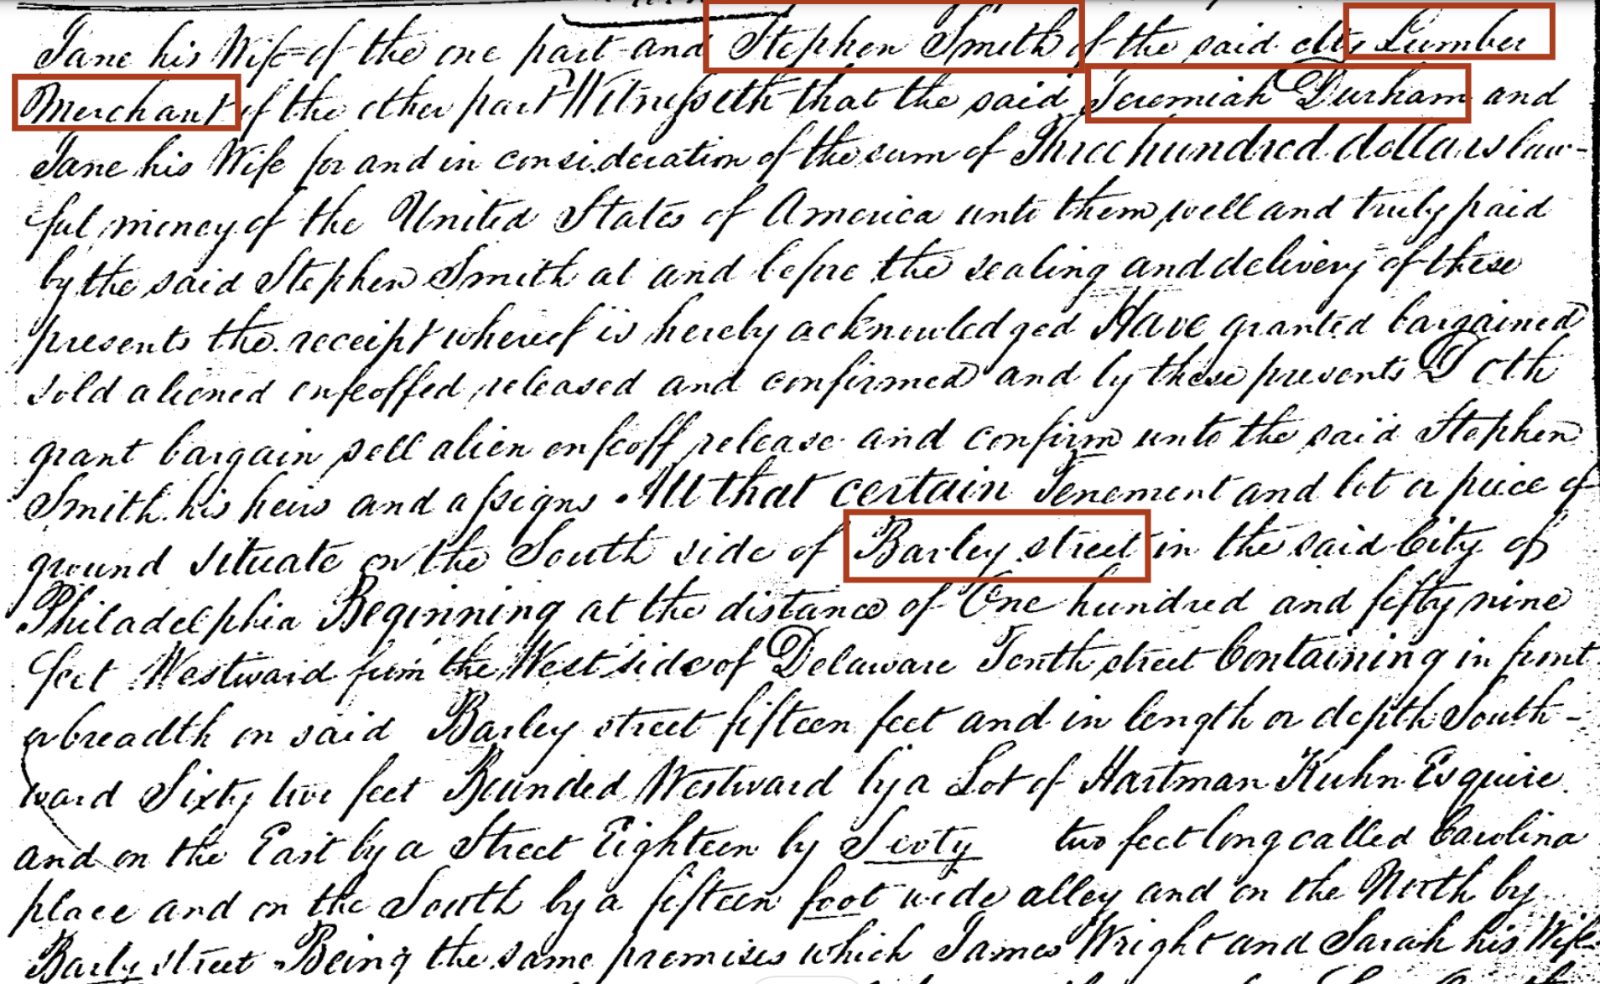 Jane his Wife of the one part and Stephen Smith of the said city Lumber
Merchant of the other part Witnesseth that the said Jeremiah Durham and
Jane his Wife for and in consideration of the sum of Three hundred dollars law-
ful money of the United States of America unto them well and truly paid
by the said Stephen Smith at and before the sealing and delivery of these
presents the receipt whereof is hereby acknowledged Have granted bargained
sold aliened enfeoffed released and confirmed and by these presents Doth
grant bargain sell alien enfeoff release and confirm unto the said Stephen
Smith his heirs and assigns All that certain Tenement and lot or piece of
ground situate on the South side of Barley street in the said City of
Philadelphia Beginning at the distance of One hundred and fifty nine
feet Westward from the West side of Delaware Tenth street Containing in front
or breadth on said Barley street fifteen feet and in length or depth South-
ward Sixty two feet Bounded Westward by a Lot of Hartman Kuhn Esquire
and on the East by a Street Eighteen by Sixty two feet long called Carolina
place and on the South by a fifteen foot wide alley and on the North by
Barley street Being the same premises which James Wright and Sarah his Wife